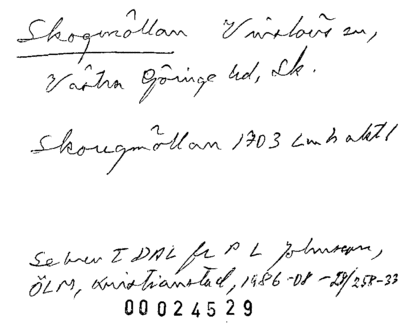 Skogmöllan Vinslövs sn,
Västra Göinge hd, Sk.
Skougmöllan 1703 Lmh akt 1
Se brev t DAL fr P L Johnsson,
ÖLM, Kristianstad, 1986-08-28/258-33
00024529